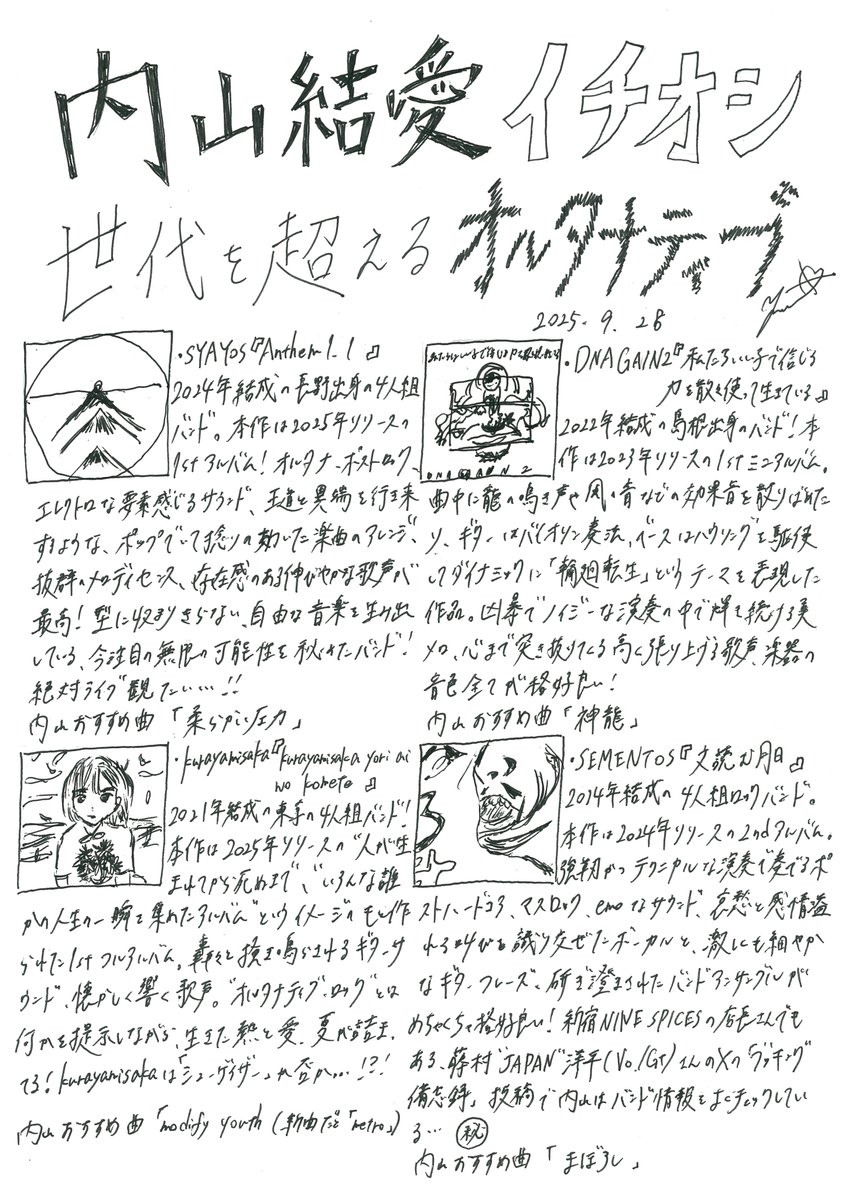 内山結愛イチオシ
世代を超えるオルタナティブ
2025.9.28
・SYAYOS『Anthem 1_1』
2024年結成の長野出身の4人組
バンド。本作は2025年リリースの
1stアルバム!オルタナ、ポストロック、
エレクトロな要素感じるサウンド、王道と異端を行き来
するような、ポップでいて捻りの効いた楽曲のアレンジ、
抜群のメロディセンス、存在感のある伸びやかな歌声が
最高!型に収まりきらない、自由な音楽を生み出
している、今注目の無限の可能性を秘めたバンド!
絶対ライブ観たい…!!
内山おすすめ曲「柔らかい圧力」
・DNA GAINZ『私たちいい子で信じる
力を散々使って生きている』
2022年結成の島根出身のバンド!本
作は2023年リリースの1stミニアルバム。
曲中に龍の鳴き声や風の音などの効果音を散りばめた
り、ギターはバイオリン奏法、ベースはハウリングを駆使
してダイナミックに「輪廻転生」というテーマを表現した
作品。凶暴でノイジーな演奏の中で輝き続ける美
メロ、心まで突き抜けてくる高く張り上げる歌声、楽器の
音色全てが格好良い!
内山おすすめ曲「神龍」
・kurayamisaka『kurayamisaka yori ai
wo komete』
2021年結成の東京の4人組バンド!
本作は2025年リリースの"人が生
まれてから死ぬまで、いろんな誰
かの人生の一瞬を集めたアルバム"というイメージのもと作
られた1stフルアルバム。轟々と掻き鳴らされるギターサ
ウンド、懐かしく響く歌声。"オルタナティブ・ロック"とは
何かを提示しながら、生きた熱と愛、夏が詰まっ
てる!kurayamisakaは「シューゲイザー」か否か…!?!
内山おすすめ曲「modify youth (新曲だと「metro」)
・SEMENTOS『文読む月日』
2014年結成の4人組ロックバンド。
本作は2024年リリースの2ndアルバム。
強靭かつテクニカルな演奏で奏でるポ
ストハードコア、マスロック、emoなサウンド、哀愁と感情溢
れる叫びを織り交ぜたボーカルと、激しくも細やか
なギターフレーズ、研ぎ澄まされたバンドアンサンブルが
めちゃくちゃ格好良い!新宿NINE SPICESの店長さんでも
ある、藤村"JAPAN"洋平(Vo./Gt)さんのXの「ブッキング
備忘録」投稿で内山はバンド情報をよくチェックしてい
る…㊙
内山おすすめ曲「まぼろし」